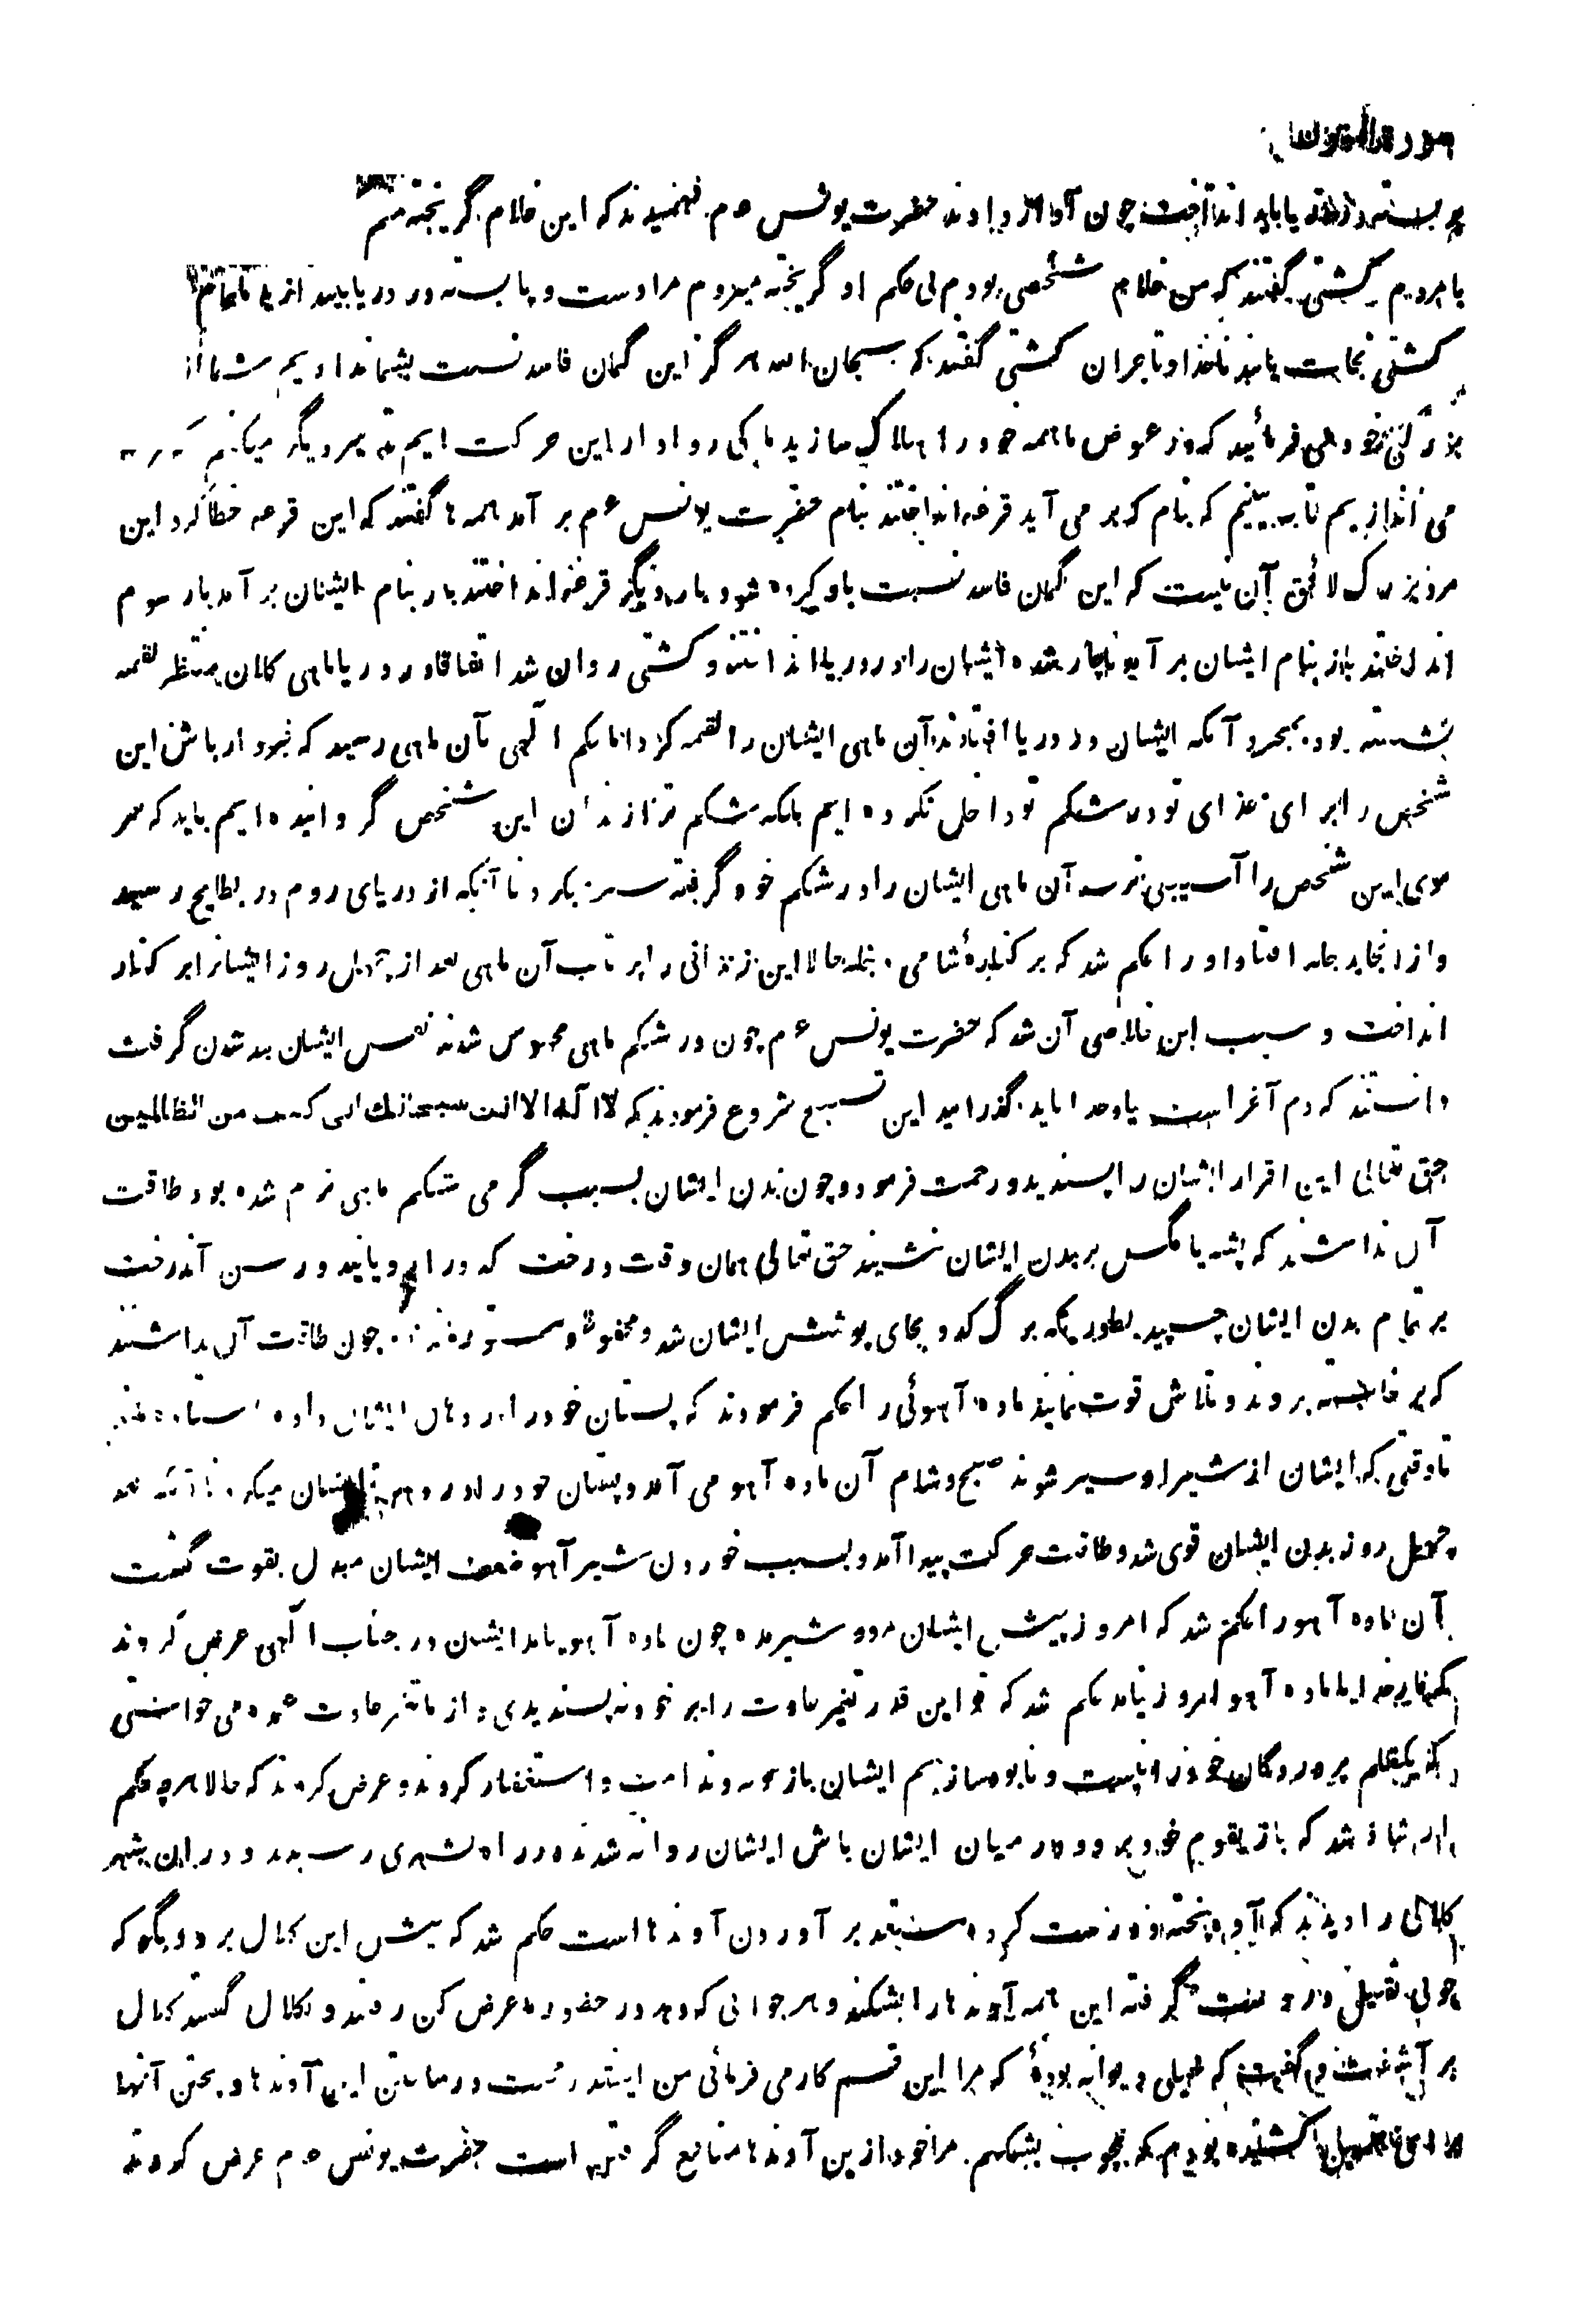 بسته در دریا باید انداخت چون آواز دادند حضرت یونس ء م فهمیدند که این غلام گریخته منم
با مردم کشتی گفتند که من غلام شخصی بودم بی حکم او گریخته میروم مرا دست و پا بسته در دریا بیندازید تا تمام
کشتی نجات یابند ناخدا و تاجران کشتی گفتند که سبحان الله هرگز این گمان فاسد نسبت بشما نداریم شما از
بزرگی خود می فرمائید که در عوض ما همه خود را هلاک سازید ما کی روادار این حرکت ایم تدبیر دیگر میکنیم
می اندازیم تا ببینیم که بنام که بر می آید قرعه انداختند بنام حضرت یونس ء م بر آمد همه ها گفتند که این قرعه خطا کرد این
مرد بزرگ لائق آن نیست که این گمان فاسد نسبت باو کرده شود بار دیگر قرعه انداختند باز بنام ایشان بر آمد بار سوم
انداختند باز بنام ایشان بر آمد ناچار شده ایشان را در دریا انداختند و کشتی روان شد اتفاقا در دریا ماهی کلان منتظر لقمه
نشسته بود بمجرد آنکه ایشان در دریا افتادند آن ماهی ایشان را لقمه کرد اما حکم الٓهی بآن ماهی رسید که خبردار باش این
شخص را برای غذای تو در شکم تو داخل نکرده ایم بلکه شکم ترا زندان این شخص گردانیده ایم باید که سر
موی این شخص را آسیبی نرسد آن ماهی ایشان را در شکم خود گرفته سیر میکرد تا آنکه از دریای روم در بطایح رسید
و از انجا بدجله افتاد او را حکم شد که بر کنارهٔ شامی دجله حالا این زندانی را پرتاب آن ماهی بعد از چهل روز ایشانرا بر کنار
انداخت و سبب این خلاصی آن شد که حضرت یونس ء م چون در شکم ماهی محبوس شدند نفس ایشان بند شدن گرفت
دانستند که دم آخر است یاد خدا باید گذرانید این تسبیح شروع فرمودند که لا اله الا انت سبحانك انی كنت من الظالمین
حق تعالی این اقرار ایشان را پسندید و رحمت فرمود و چون بدن ایشان بسبب گرمی شکم ماهی نرم شده بود طاقت
آن نداشتند که پشه یا مگس بر بدن ایشان نشیند حق تعالی همان وقت درخت کدو را رویانید و رسن آندرخت
بر تمام بدن ایشان چسپید بطوریکه برگ کدو بجای پوشش ایشان شد و محفوظ و مستور چون طاقت آن نداشتند
که بر خاسته بروند و تلاش قوت نمایند ماده آهوئی را حکم فرمودند که پستان خود را در دهان ایشان داده استاده
تا وقتی که ایشان از شیر او سیر شوند صبح و شام آن ماده آهو می آمد و پستان خود را در دهن ایشان میکرد تا آنکه بعد
چهل روز بدن ایشان قوی شد و طاقت حرکت پیدا آمد و بسبب خوردن شیر آهو ضعف ایشان مبدل بقوت گشت
آن ماده آهو را حکم شد که امروز پیش ایشان مرو و شیر مده چون ماده آهو نیامد ایشان در جناب الٓهی عرض کردند
که بار خدایا ماده آهو امروز نیامد حکم شد که تو این قدر تغیر عادت را بر خود نپسندیدی و از ما تغیر عادت عمده می خواستی
که یکقلم پروردگان خود را نیست و نابود سازیم ایشان باز توبه و ندامت و استغفار کردند و عرض کردند که حالا هر چه حکم
ارشاد شد که باز بقوم خود برو و در میان ایشان باش ایشان روانه شدند در راه بشهری رسیدند و در ان شهر
کلالی را دیدند که آوند پخته و درست کرده مستعد بر آوردن آوندها است حکم شد که پیش این کلال برو و بگو که
چوبی ثقیلی در دست گرفته این همه آوندها را بشکند و هر جوابی که دهد در حضور ما عرض کن رفتند و بکلال گفتند کلال
بر آشفت و گفت که خیلی دیوانه بودهٔ که مرا این قسم کار می فرمائی من اینقدر مشقت در ساختن این آوندها و پختن آنها
کشیده بودم که بچوب بشکنم مرا خود ازین آوندها منافع گرفتن است حضرت یونس ء م عرض کردند